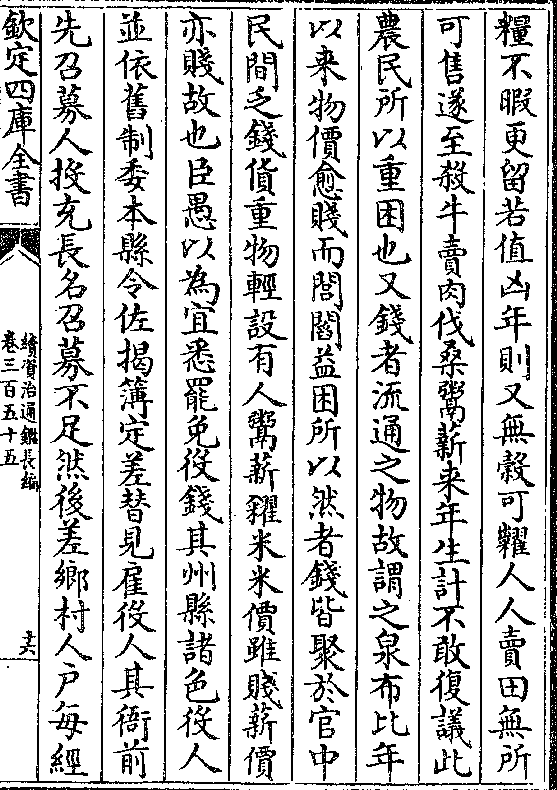 糧不暇更留若值凶年則又無穀可糶人人賣田無所
可售遂至殺牛賣肉伐桑鬻薪来年生計不敢復議此
農民所以重困也又錢者流通之物故謂之泉布比年
以来物價愈賤而閭閻益困所以然者錢皆聚於官中
民間乏錢貨重物輕設有人鬻薪糴米米價雖賤薪價
亦賤故也臣愚以為宜悉罷免役錢其州縣諸色役人
並依舊制委本縣令佐揭簿定差替見雇役人其衙前
先召募人投充長名召募不足然後差鄉村人户每經
欽定四庫全書
續資治通鑑長編
卷三百五十五
十六